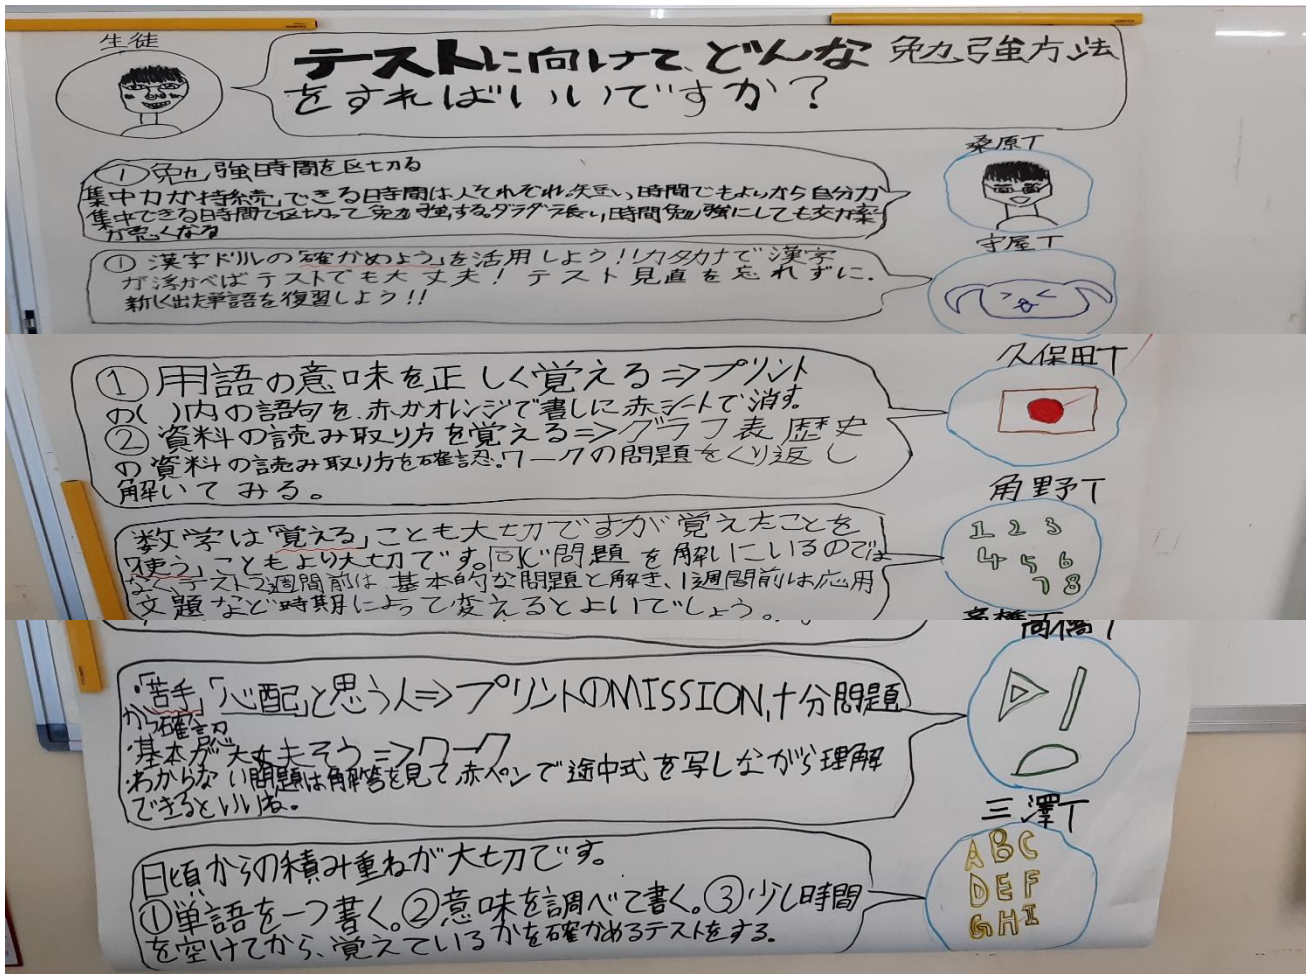 生徒
テストに向けて、どんな勉強方法
をすればいいですか？
桑原T
① 勉強時間を区切る
集中力が持続できる時間は人それぞれ。短い時間でもよいから自分が
集中できる時間で区切って勉強する。ダラダラ長い時間勉強にしても効率
が悪くなる
守屋T
① 漢字ドルの「確かめよう」を活用しよう！！カタカナで漢字
が浮かべばテストでも大丈夫！テスト見直を忘れずに.
新しく出た単語を復習しよう！！
久保田T
① 用語の意味を正しく覚える⇒プリント
の( )内の語句を、赤かオレンジで書しに赤シートで消す。
② 資料の読み取り方を覚える⇒グラフ表歴史
の資料の読み取り方を確認。ワークの問題をくり返し
解いてみる。
角野T
1 2 3
4 5 6
7 8
数学は「覚える」ことも大切ですが覚えたことを
「使う」こともより大切です。同じ問題を解いにいるのでは
なくテスト2週間前は基本的な問題と解き、1週間前は応用
文題など時期によって変えるとよいでしょう。
高橋T
・「苦手」「心配」と思う人⇒プリントのMISSION,十分問題
から確認
・基本が大丈夫そう⇒ワーク
・わからない問題は解答を見て赤ペンで途中式を写しながら理解
できるといいね。
三澤T
ABC
DEF
GHI
日頃からの積み重ねが大切です。
①単語を一つ書く。②意味を調べて書く。③少し時間
を空けてから、覚えているかを確かめるテストをする。